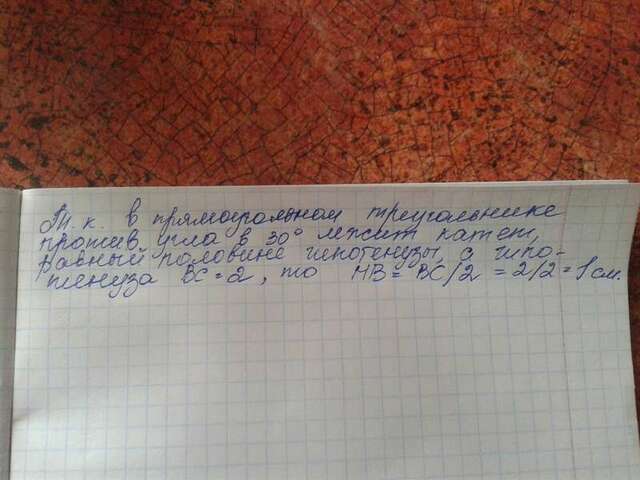 Т.к. в прямоугольном треугольнике
против угла в 30° лежит катет,
равный половине гипотенузы, а гипо-
тенуза BC = 2, то HB = BC/2 = 2/2 = 1 см.